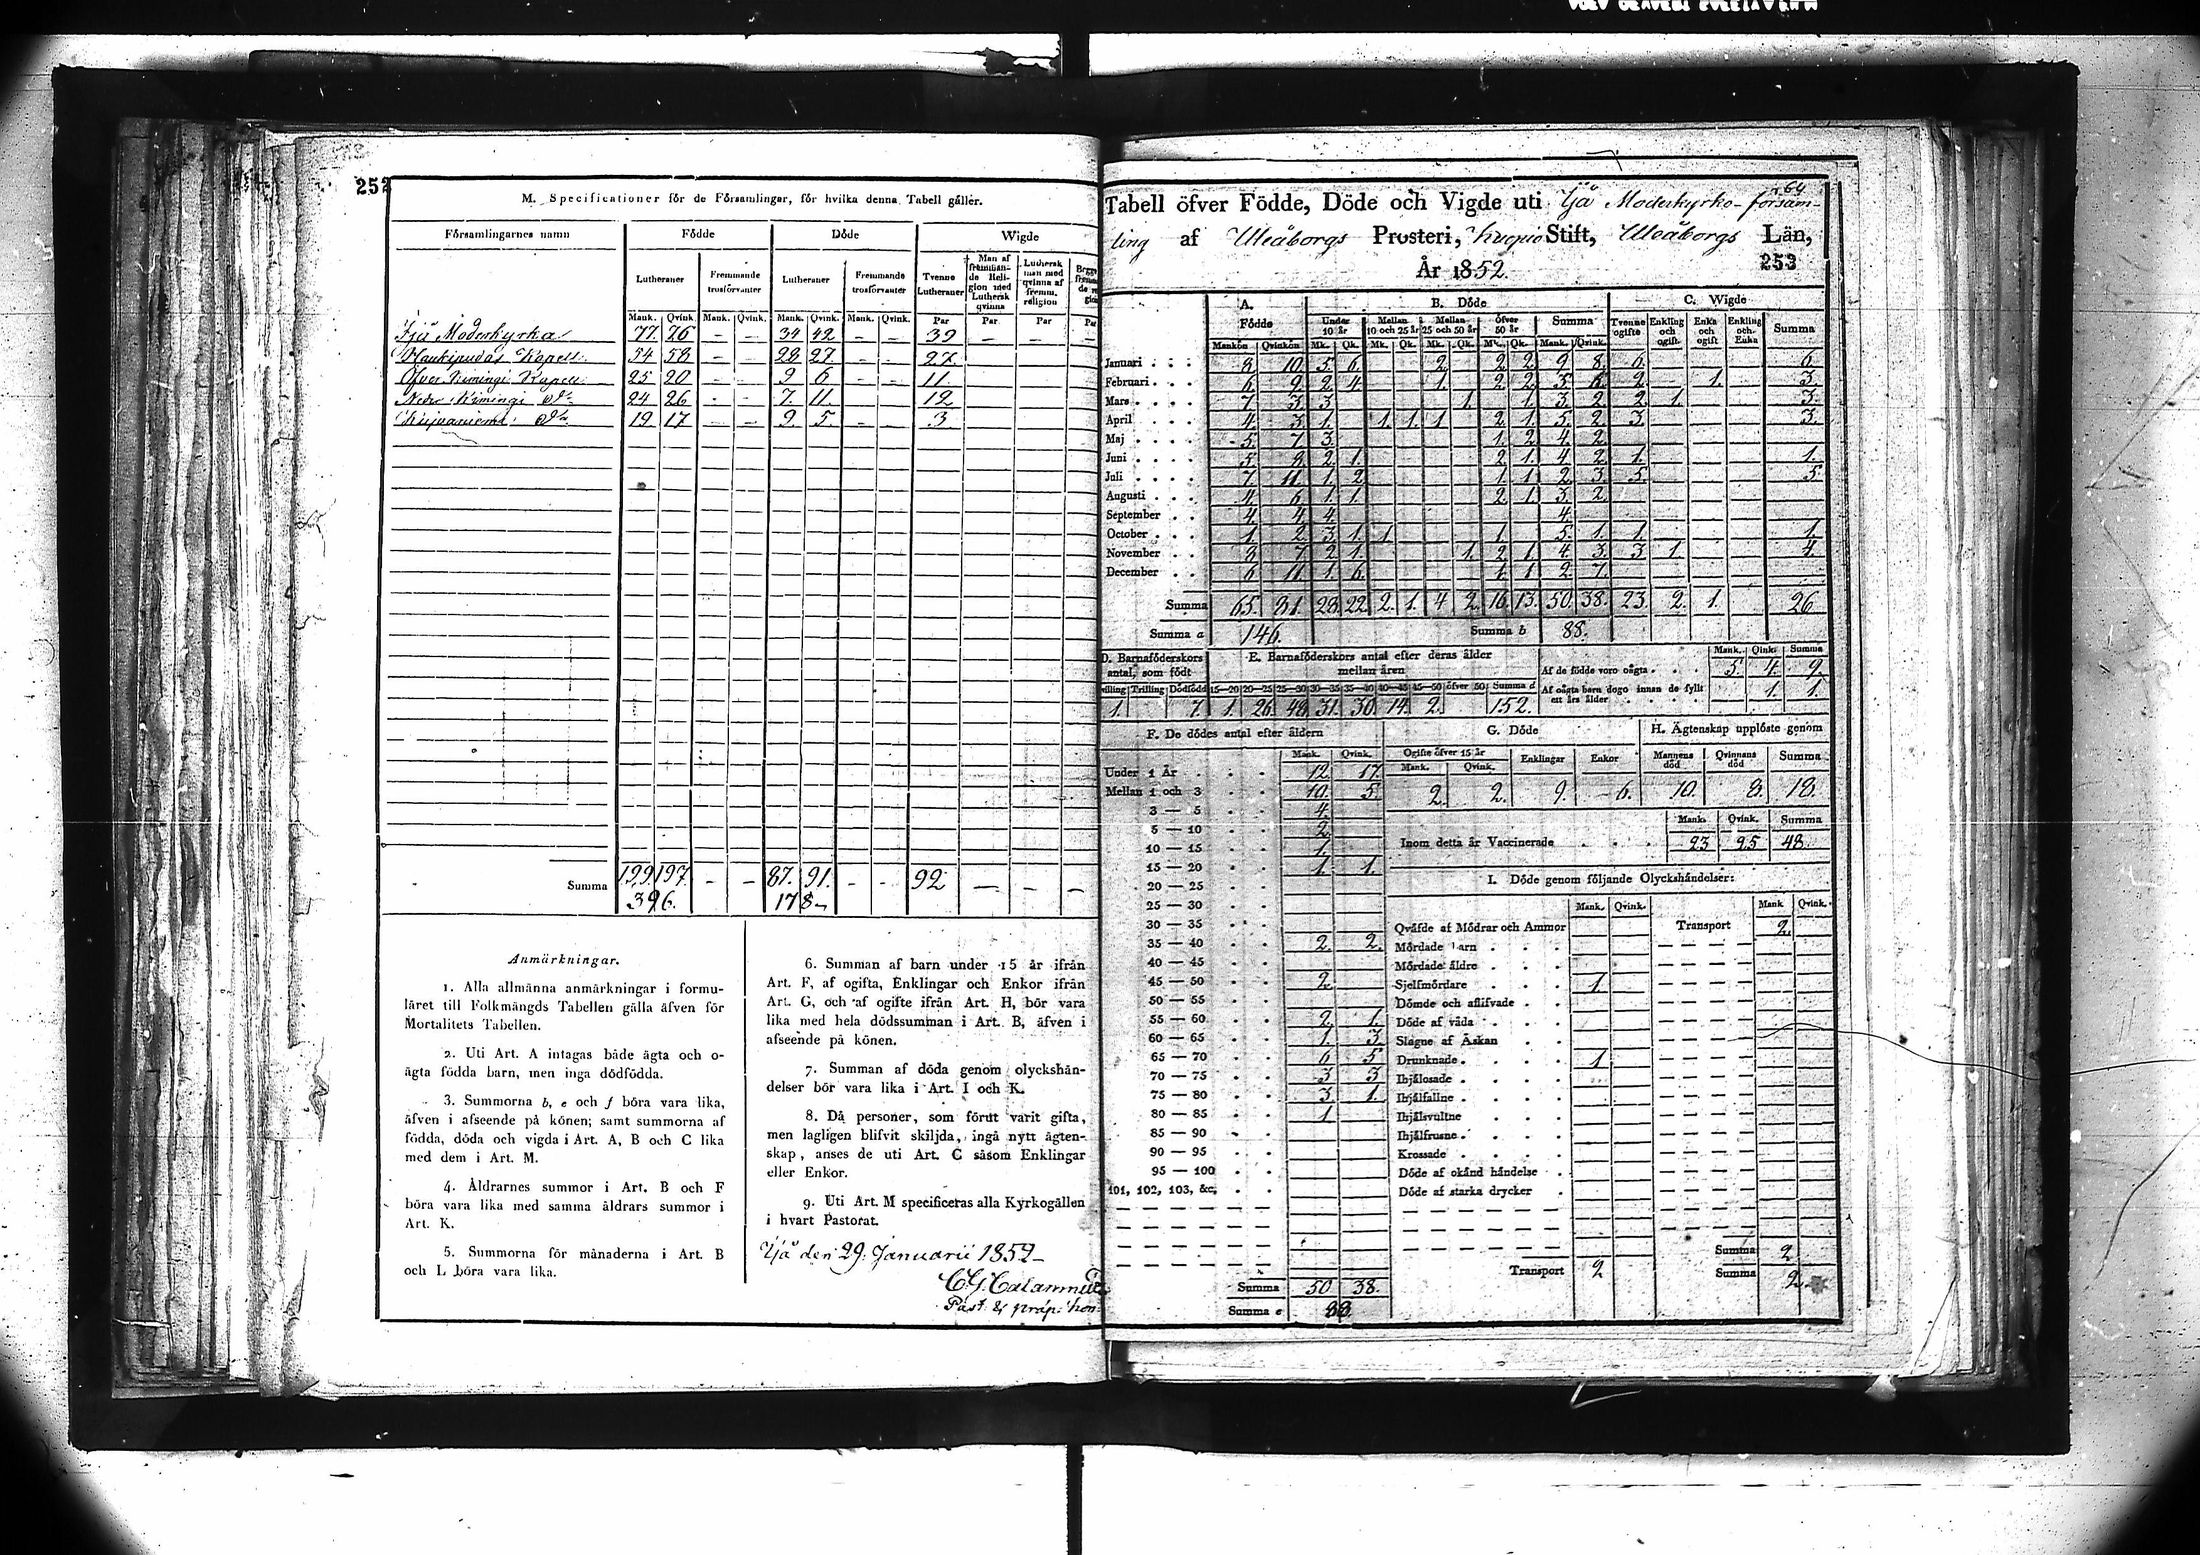 252
M. Specificationer för de Församlingar, för hvilka denna Tabell gäller.
Församlingarnes namn Födde Döde Wigde
Lutheraner Fremmande trosförvanter Lutheraner Fremmande trosförvanter Tvenne Lutheraner Man af fremmande Religion med Luthersk qvinna Luthersk man med qvinna af fremm. religion
Mank. Qvink. Mank. Qvink. Mank. Qvink. Mank. Qvink. Par Par Par Par
Ijå Moderkyrka 77. 76 – – 34 42 – – 39 – – –
Haukipudas Kapell 54 58 – – 28 27 – – 27.
Öfver Kimingi Kapell 25 20 – – 9 6 – – 11
Nedre Kimingi do 24 26 – – 7. 11. – – 12
Kuivaniemi do 19 17 – – 9 5. – – 3
Summa 199 197. – – 87. 91. – – 92 – – –
396. 178
Anmärkningar.
1. Alla allmänna anmärkningar i formu-
läret till Folkmängds Tabellen gälla äfven för
Mortalitets Tabellen.
2. Uti Art. A intagas både ägta och o-
ägta födda barn, men inga dödfödda.
3. Summorna b, e och f böra vara lika,
äfven i afseende på könen; samt summorna af
födda, döda och vigda i Art. A, B och C lika
med dem i Art. M.
4. Åldrarnes summor i Art. B och F
böra vara lika med samma åldrars summor i
Art. K.
5. Summorna för månaderna i Art. B
och L böra vara lika.
6. Summan af barn under 15 år ifrån
Art. F, af ogifta, Enklingar och Enkor ifrån
Art. G, och af ogifte ifrån Art. H, bör vara
lika med hela dödssumman i Art. B, äfven i
afseende på könen.
7. Summan af döda genom olyckshän-
delser bör vara lika i Art. I och K.
8. Då personer, som förut varit gifta,
men lagligen blifvit skiljda, ingå nytt ägten-
skap, anses de uti Art. C såsom Enklingar
eller Enkor.
9. Uti Art. M specificeras alla Kyrkogällen
i hvart Pastorat.
Ijå den 29. Januarii 1852
C.G. Calamnius
Past. & præp. hon.
64
Tabell öfver Födde, Döde och Vigde uti Ijå Moderkyrko-försam-
ling af Uleåborgs Prosteri, Kuopio Stift, Uleåborgs Län,
År 1852. 253
A. B. Döde C. Wigde
Födde Under 10 år Mellan 10 och 25 år Mellan 25 och 50 år öfver 50 år Summa Tvenne ogifte Enkling och ogift. Enka och ogift Enkling och Enka Summa
Mankön Qvinkön Mk. Qk. Mk. Qk. Mk. Qk. Mk. Qk. Mank. Qvink.
Januari 8 10. 5. 6. 2. 2. 2. 9 8. 6. 6.
Februari 6 9. 2. 4. 1. 2. 2. 5. 6. 2. 1. 3.
Mars 7 3 3 1. 1. 3. 2 2. 1. 3.
April 4. 3. 1. 1. 1. 1 2. 1. 5. 2. 3. 3.
Maj 5. 7 3. 1. 2. 4. 2.
Juni 5 8. 2. 1. 2. 1. 4 2 1. 1.
Juli 7. 11. 1. 2. 1. 1 2. 3. 5. 5.
Augusti 4 6 1. 1. 2. 1. 3. 2.
September 4. 4. 4 4.
October 1. 2. 3. 1. 1 1. 5. 1. 1. 1.
November 8 7 2. 1. 1. 2. 1 4. 3. 3 1. 4.
December 6 11. 1. 6. 1. 1 2. 7.
Summa 65. 81. 28. 22. 2. 1. 4 2. 16. 13. 50. 38. 23. 2. 1. 26
Summa a 146. Summa b 88.
D. Barnaföderskors antal, som födt E. Barnaföderskors antal efter deras ålder mellan åren Mank. Qink. Summa
Af de födde voro oägta 5. 4. 9.
Tvilling Trilling Dödfödd 15–20 20–25 25–30 30–35 35–40 40–45 45–50 öfver 50 Summa d Af oägta barn dogo innan de fyllt ett års ålder 1. 1.
1. 7. 1. 26. 48. 31. 30. 14. 2. 152.
F. De dödes antal efter åldern G. Döde H. Ägtenskap upplöste genom
Mank. Qvink. Ogifte öfver 15 år Mank. Qvink. Enklingar Enkor Mannens död Qvinnans död Summa
Under 1 År 12. 17.
Mellan 1 och 3 10. 5. 2. 2. 9. 6. 10. 8. 18.
3 — 5 4.
5 — 10 2. Mank. Qvink. Summa
10 — 15 1. Inom detta år Vaccinerade 23 25 48
15 — 20 1. 1.
20 — 25 I. Döde genom följande Olyckshändelser:
25 — 30 Mank. Qvink. Mank Qvink.
30 — 35 Qväfde af Mödrar och Ammor Transport 2.
35 — 40 2. 2. Mördade barn
40 — 45 Mördade äldre
45 — 50 2. Sjelfmördare 1.
50 — 55 Dömde och aflifvade
55 — 60 2. 1. Döde af våda
60 — 65 1. 3. Slagne af Åskan
65 — 70 6 5 Drunknade 1
70 — 75 3 3 Ihjälosade
75 — 80 3. 1. Ihjälfallne
80 — 85 1. Ihjälsvultne
85 — 90 Ihjälfrusne
90 — 95 Krossade
95 — 100 Döde af okänd händelse
101, 102, 103, &c. Döde af starka drycker
Summa 2
Transport 2 Summa 2.
Summa 50. 38.
Summa e 88.